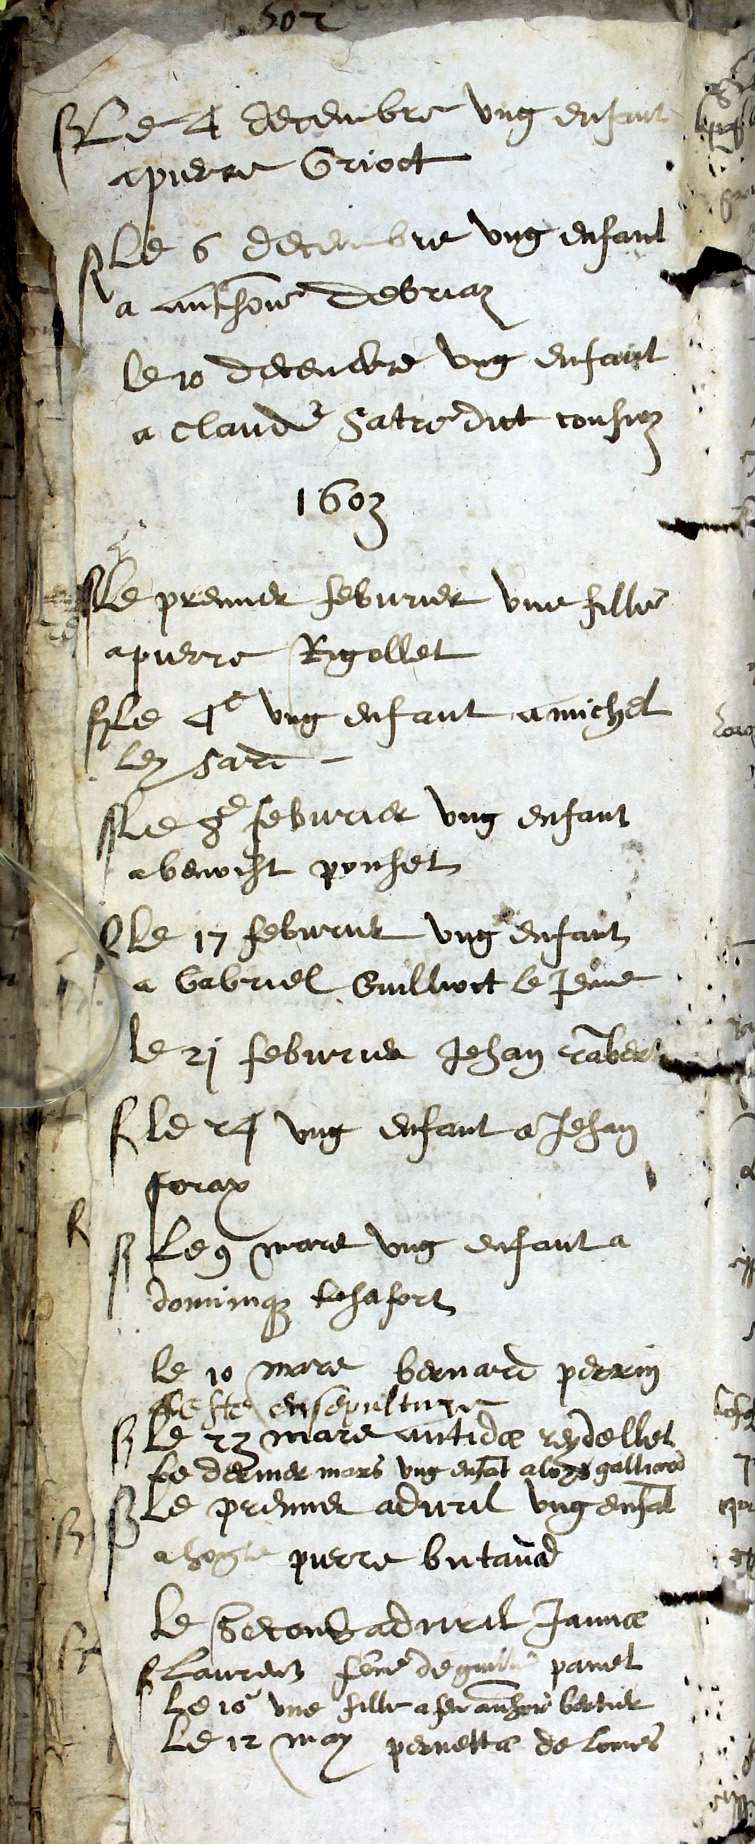 502
Le 4 decembre ung enfant
a pierre Grioct
Le 6 decembre ung enfant
a anthoine Debriaz
le 10 decembre ung enfant
a claude Satre dict
1603
Le premier feburier une fille
a pierre Rigollet
Le 4e ung enfant a michel
ley Sard
Le 8e feburier ung enfant
a benoist ponset
Le 17 feburier ung enfant
a Gabriel Guillioct le Jeune
le 21 feburier Jehan
le 24 ung enfant a Jehan
forax
Le 9 mars ung enfant a
dominiq
le 10 mars bernard perrin
ensepulture
Le 23 mars antida reydellet
Le dernier mars ung enfat a loys galliard
Le premier apvril ung enfat
a pierre butavad
Le Second apvril Janna
Laurenz feme de pamet
Le 10 une fille a feu anthoine bertier
Le 12 may pernetta de